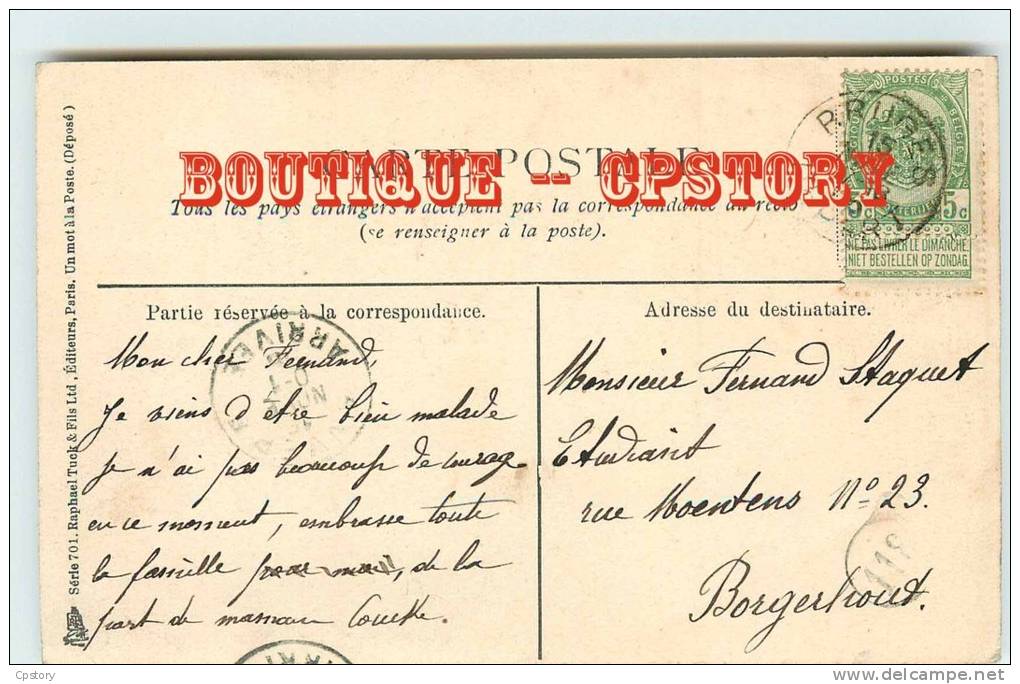 BOUTIQUE -- CPSTORY
CARTE POSTALE
Tous les pays étrangers n'acceptent pas la correspondance au recto
(se renseigner à la poste).
Série 701. Raphael Tuck & Fils Ltd, Éditeurs, Paris. Un mot à la Poste. (Déposé)
POSTES
BELGIQUE
5c 5c
NE PAS LIVRER LE DIMANCHE
NIET BESTELLEN OP ZONDAG
Partie réservée à la correspondance.
ARRIVÉE
Mon cher Fernand,
Je viens d'etre bien malade
je n'ai pas beaucoup de courage
en ce moment, embrasse toute
la famille pour moi, de la
part de maman
Adresse du destinataire.
Monsieur Fernand Staquet
Etudiant
rue Moentens Nº 23.
Borgerhout.
Cpstory
delcampe.net